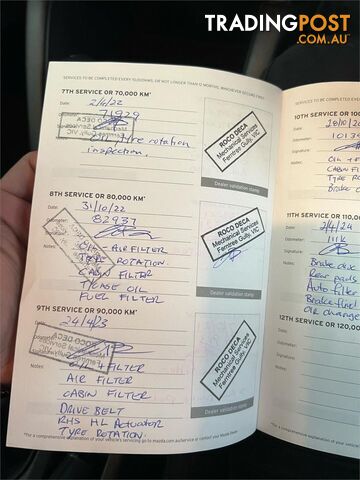 TRADINGPOST
.COM.AU
SERVICES TO BE COMPLETED EVERY 10,000KMS, OR NOT LONGER THAN 12 MONTHS, WHICHEVER OCCURS FIRST
7TH SERVICE OR 70,000 KM*
Date: 2/4/22
71929
Oil, Tyre rotation
inspection.
ROCO DECA
Mechanical Services
Ferntree Gully, VIC
Dealer validation stamp
8TH SERVICE OR 80,000 KM*
Date: 31/10/22
Odometer: 82937
Signature:
Notes: OIL - AIR FILTER
TYRE ROTATION
CABIN FILTER
T/CASE OIL
FUEL FILTER
ROCO DECA
Mechanical Services
Ferntree Gully, VIC
Dealer validation stamp
9TH SERVICE OR 90,000 KM*
Date: 24/4/23
Notes: OIL + FILTER
AIR FILTER
CABIN FILTER
DRIVE BELT
RHS HL Actuator
TYRE ROTATION
ROCO DECA
Mechanical Services
Ferntree Gully, VIC
Dealer validation stamp
*For a comprehensive explanation of your vehicle's servicing go to mazda.com.au/service or contact your Mazda Dealer
SERVICES TO BE COMPLE
10TH SERVICE OR 100
Date:
Odometer:
Signature:
Notes: OIL + F
CABIN F
TYRE RO
11TH SERVICE OR 110,
Date: 2/4/24
Odometer: 111k
Signature:
Notes: Brake
Rear pads
Brake fluid
Oil change
12TH SERVICE OR 120,000
Date:
Odometer:
Signature:
Notes: